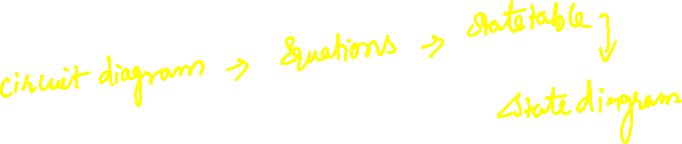 circuit diagram → Equations → State table
State diagram